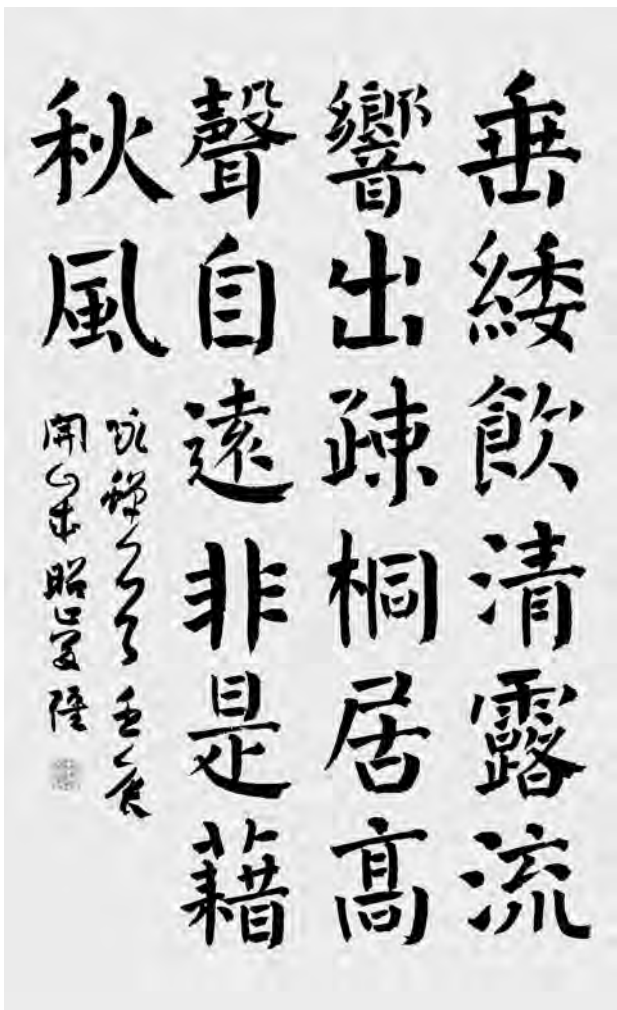 垂緌飲清露流
響出疎桐居高
聲自遠非是藉
秋風